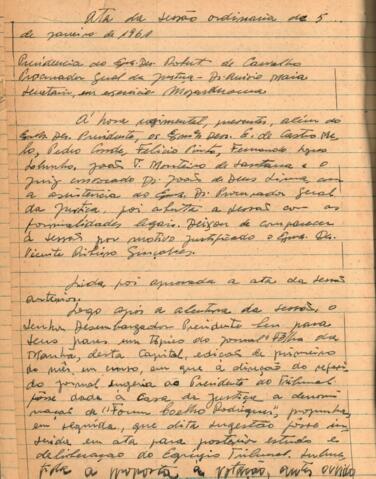 Ata da sessão ordinaria de 5
de janeiro de 1961
Presidencia do Exmo. Des. Robert de Carvalho
Procurador Geral da Justiça - Dr. Maia
Secretario, em exercício
Á hora regimental, presentes, além do
Des. Presidente, os Exmos. Dess. E. de Castro Me-
lo, Pedro Conde, Felicio Pinto, Fernando Lopes
Sobrinho, João T. Monteiro de Santana e o
Juiz convocado Dr. João de Deus Lima, com
a assistencia do Exmo. Dr. Procurador Geral
da Justiça, foi aberta a sessão com as
formalidades legais. Deixou de comparecer
á sessão por motivo justificado o Exmo. Des.
Vicente Ribeiro Gonçalves.
Lida foi aprovada a ata da sessão
anterior.
Logo após a abertura da sessão, o
Senhor Desembargador Presidente leu para
seus pares um tópico do jornal "Folha da
Manhã, desta Capital, edição de primeiro
do mês em curso, em que a direção do referi-
do jornal sugeria ao Presidente do Tribunal
fôsse dada à Casa de Justiça a denomi-
nação de "Forum Coelho Rodrigues",
em seguida, que dita sugestão fôsse in-
serida em ata para posterior estudo e
deliberação do Egrégio Tribunal. Subme-
tida a proposta a votação, antes ouvido